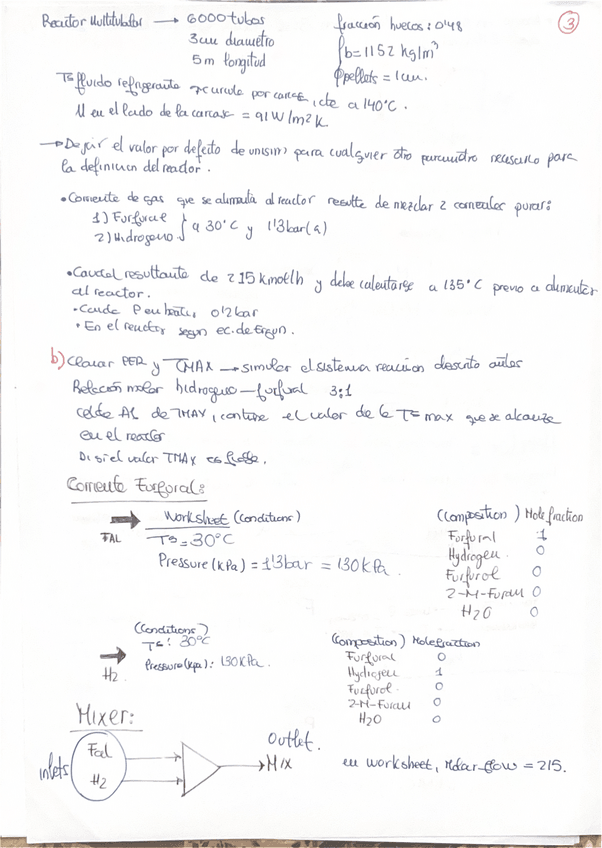 Reactor Multitubular → 6000 tubos
3cm diámetro
5m longitud
fracción huecos: 0'48
ρb = 1152 kg/m³
φpellets = 1cm.
3
Tª fluido refrigerante circula por carcasa, cte a 140°C.
U en el lado de la carcasa = 91 W/m² K
→ Dejar el valor por defecto de unisim para cualquier otro parámetro necesario para
la definición del reactor.
• Corriente de gas que se alimenta al reactor resulta de mezclar 2 corrientes puras:
1) Furfural
2) Hidrógeno } a 30°C y 1'3 bar(a)
• Caudal resultante de 215 kmol/h y debe calentarse a 135°C previo a alimentar
al reactor.
• Caída P en heater 0'2 bar
• En el reactor según ec. de Ergun.
b) Clonar PFR y TMAX → simular el sistema reacción descrito antes
Relación molar hidrógeno - furfural 3:1
celda A1 de TMAX, contiene el valor de la Tª max que se alcanza
en el reactor
Di si el valor TMAX es
Corriente Furfural:
→ FAL
Worksheet (conditions)
Tª = 30°C
Pressure (kPa) = 1'3bar = 130kPa.
(Composition) Mole fraction
Furfural 1
Hydrogen 0
Furfurol 0
2-M-Furan 0
H2O 0
→ H2
(Conditions)
Tª: 30°C
Pressure (kpa): 130kPa.
(Composition) Mole fraction
Furfural 0
Hydrogen 1
Furfurol 0
2-M-Furan 0
H2O 0
Mixer:
inlets
Fal
H2
Outlet.
→ MIX
en worksheet, Molar-flow = 215.